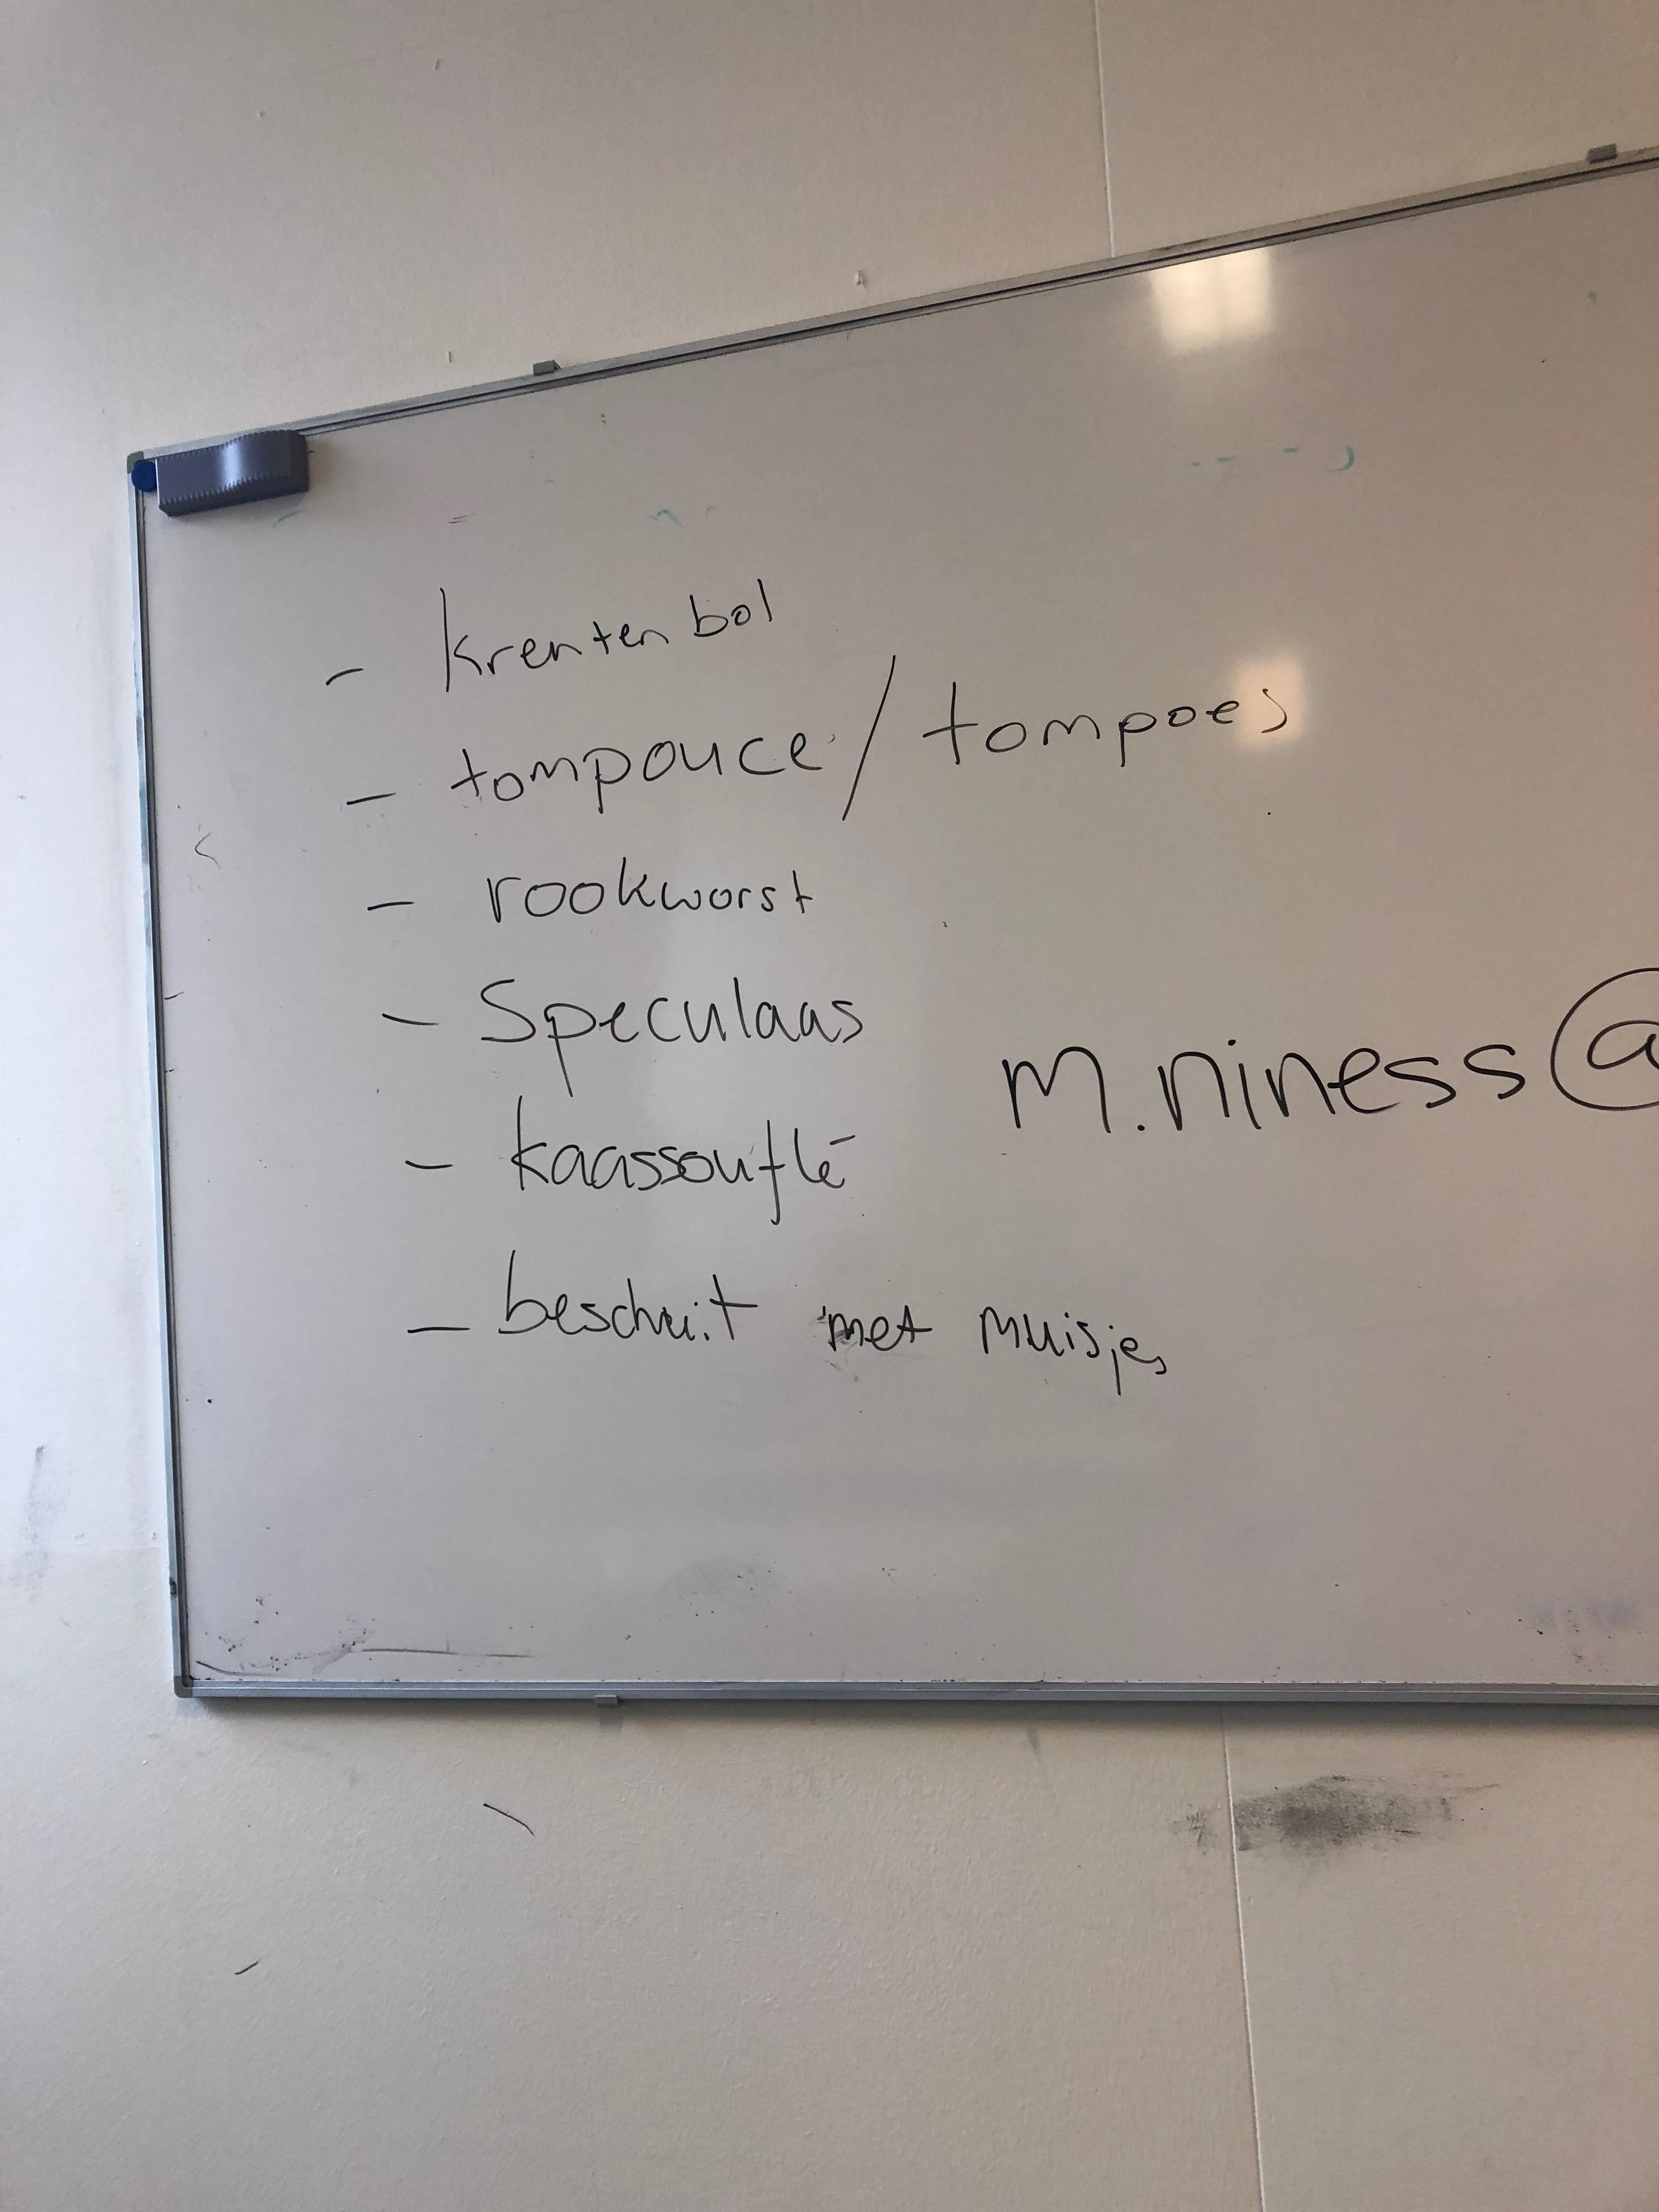 - krentenbol
- tompouce / tompoes
- rookworst
- Speculaas
- kaassouflé
- beschuit met muisjes
m.niness@